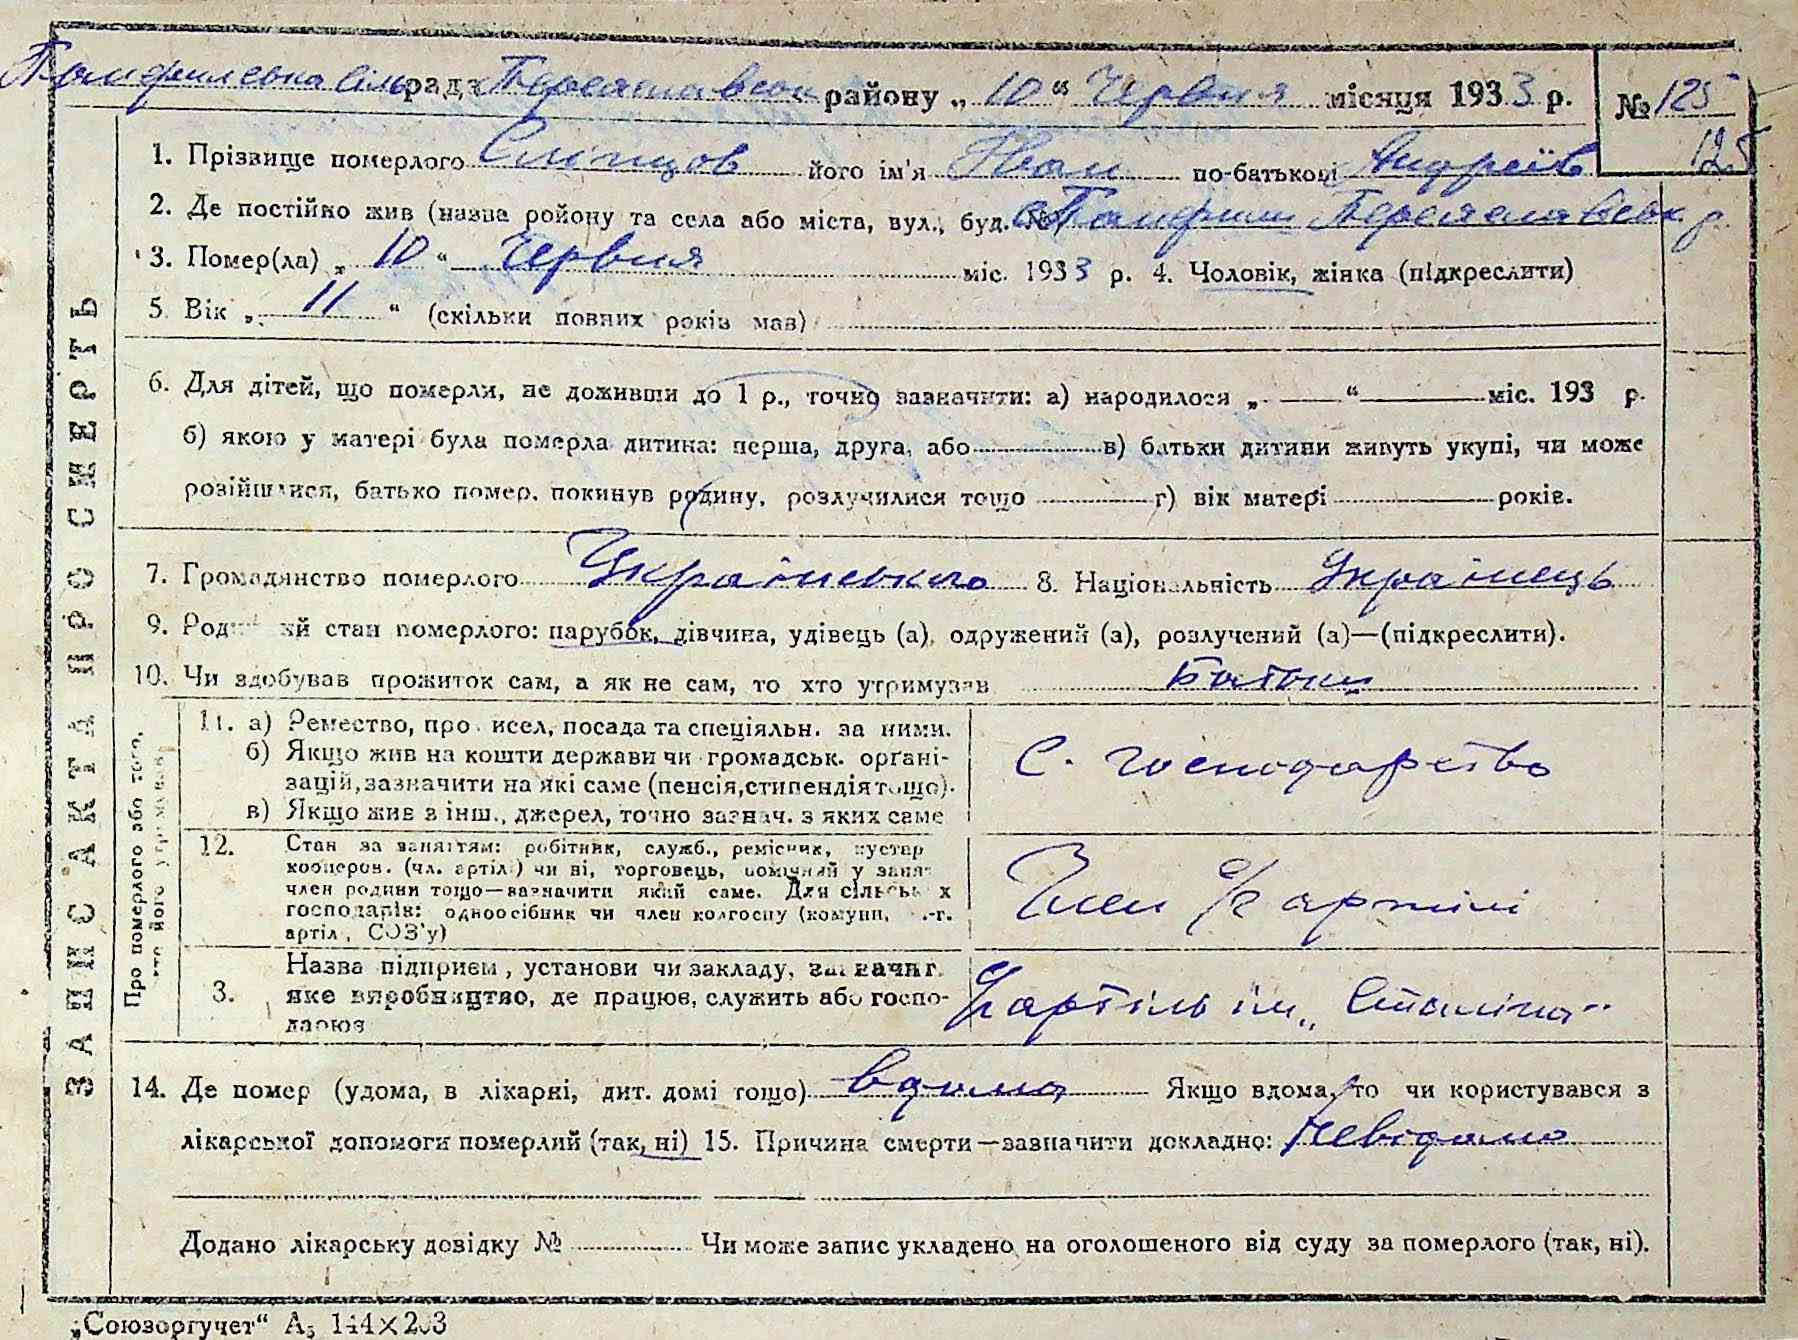 Памфилевська сільрада Переяславськ. району „10“ Червня місяця 1933 р. № 125
125
1. Прізвище померлого Сліпцов його ім'я Іван по-батькові Андреїв
2. Де постійно жив (назва району та села або міста, вул., буд. №) с. Памфили Переяславськ. р.
3. Помер(ла) „10“ Червня міс. 1933 р. 4. Чоловік, жінка (підкреслити)
5. Вік „11“ (скільки повних років мав)
6. Для дітей, що померли, не доживши до 1 р., точно зазначити: а) народилося „—“ — міс. 193 р.
б) якою у матері була померла дитина: перша, друга, або в) батьки дитини живуть укупі, чи може
розійшлися, батько помер, покинув родину, розлучилися тощо г) вік матері років.
7. Громадянство померлого Українського 8. Національність Українець
9. Родинний стан померлого: парубок, дівчина, удівець (а), одружений (а), розлучений (а)—(підкреслити).
10. Чи здобував прожиток сам, а як не сам, то хто утримував Батьки
ЗАПИС АКТА ПРО СМЕРТЬ
Про померлого або того, хто його утримував
11. а) Ремество, промисел, посада та спеціяльн. за ними.
б) Якщо жив на кошти держави чи громадськ. органі-
зацій, зазначити на які саме (пенсія, стипендія тощо).
в) Якщо жив з інш., джерел, точно зазнач. з яких саме
С. господарство
12. Стан за заняттям: робітник, служб., ремісник, кустар
кооперов. (чл. артілі) чи ні, торговець, помічний у занят.
член родини тощо—зазначити який саме. Для сільських
господарів: одноосібник чи член колгоспу (комуни, с.-г.
артіл, СОЗ'у)
Член с/г артілі
3. Назва підприєм, установи чи закладу, зазначит.
яке виробництво, де працює, служить або госпо-
дарює
с/г артіль ім. „Сталіна"
14. Де помер (удома, в лікарні, дит. домі тощо) вдома Якщо вдома, то чи користувався з
лікарської допомоги померлий (так, ні) 15. Причина смерти—зазначити докладно: Невідомо
Додано лікарську довідку № Чи може запис укладено на оголошеного від суду за померлого (так, ні).
„Союзоргучет“ А5 144×203